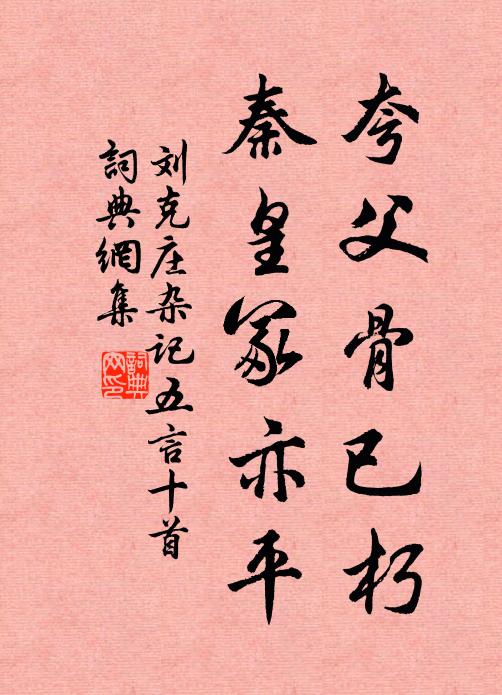 夸父骨已朽
秦皇冢亦平
刘克庄杂记五言十首
詞典網集
詞典網印